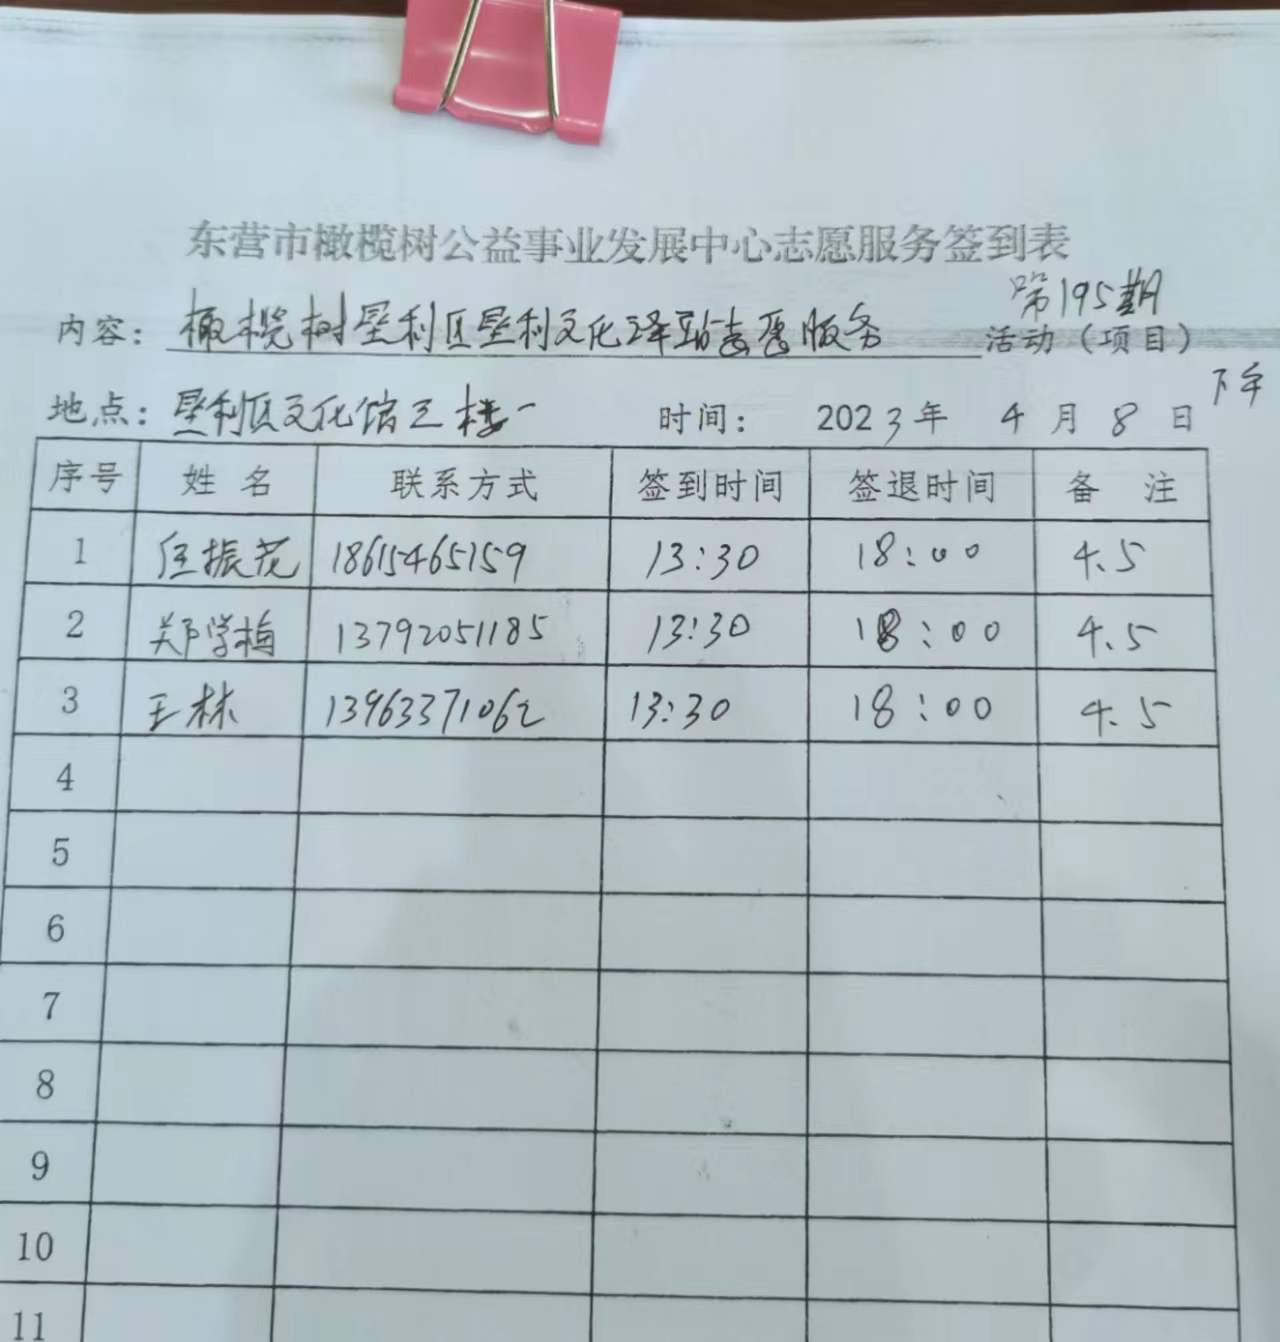 东营市橄榄树公益事业发展中心志愿服务签到表
第195期
内容：橄榄树垦利区垦利文化驿站志愿服务 活动（项目）
下午
地点：垦利区文化馆三楼 时间： 2023年 4 月 8 日
序号 姓 名 联系方式 签到时间 签退时间 备 注
1 任振花 18615465159 13:30 18:00 4.5
2 郑学梅 13792051185 13:30 18:00 4.5
3 王林 13963371062 13:30 18:00 4.5
4
5
6
7
8
9
10
11